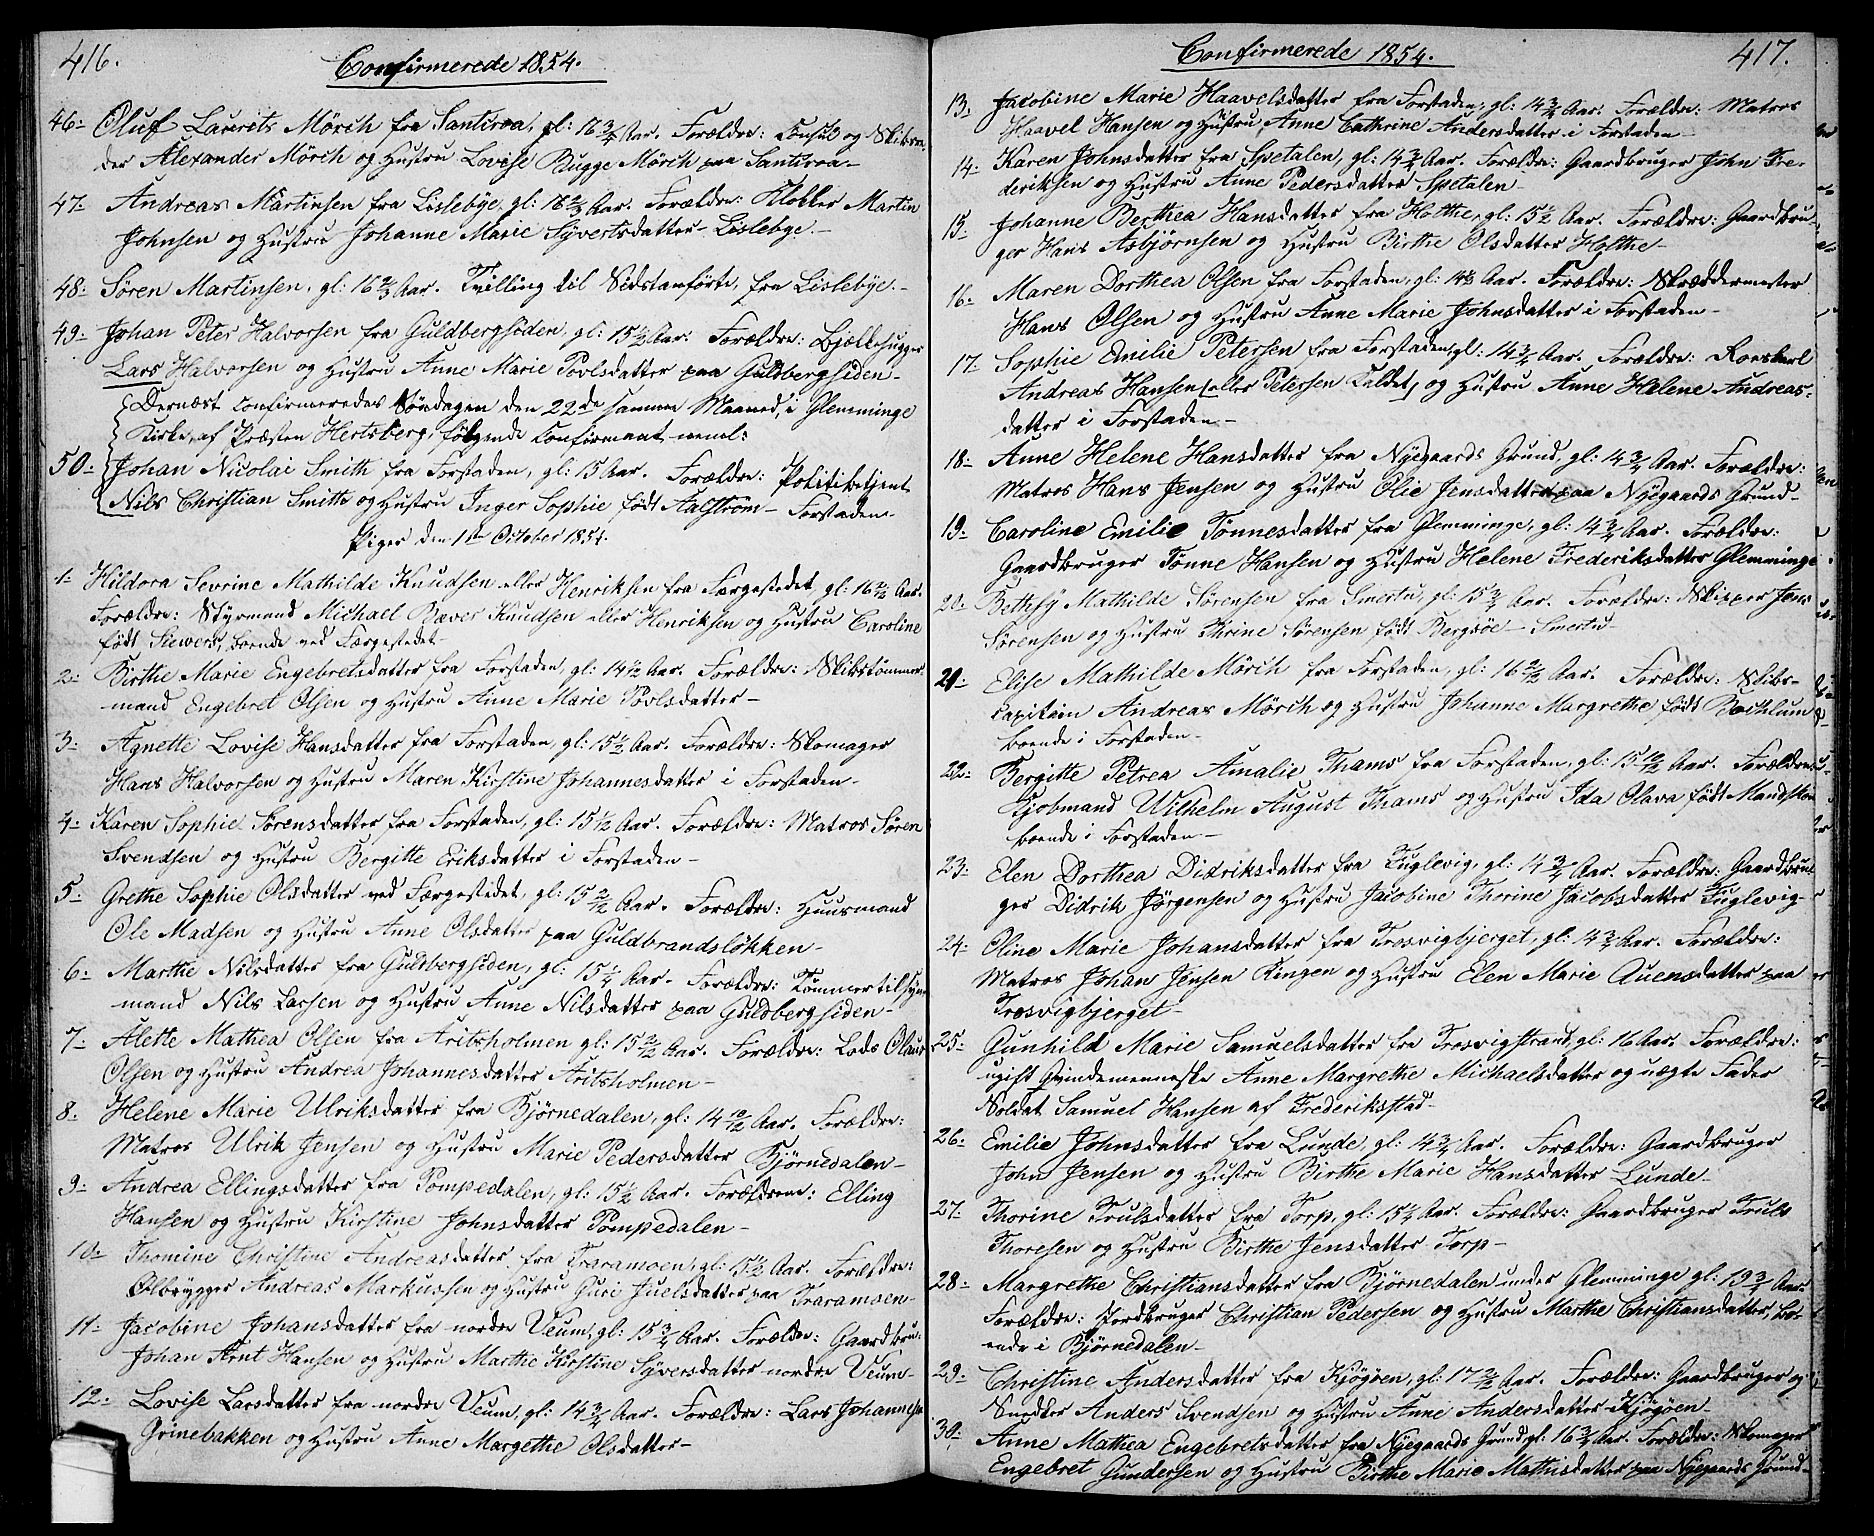 416.
Confirmerede 1854.
46. Oluf Laurits Mörch fra Santiroa, gl: 16 3/4 Aar. Forældre: Consul og Skibsre-
der Alexander Mörch og Hustru Lovise Bugge Mörch paa Santiroa-
47. Andreas Martinsen fra Lislebye, gl: 16 2/3 Aar. Forældre: Klokker Martin
Johnsen og Hustru Johanne Marie Syvertsdatter Lislebye.-
48. Søren Martinsen, gl: 16 2/3 Aar. Tvilling til Sidstanførte, fra Lislebye.-
49. Johan Peter Halvorsen fra Guldbergsiden, gl: 15 1/2 Aar. Forældre: Bjelkehugger
Lars Halvorsen og Hustru Anne Marie Povlsdatter paa Guldbergsiden-
Dernæst Confirmeredes Søndagen den 22de samme Maaned, i Glemminge
Kirke, af Præsten Hertzberg, følgende Confirmant, neml:
50. Johan Nicolai Smith fra Forstaden, gl: 15 Aar. Forældre: Politibetjent
Nils Christian Smith og Hustru Inger Sophie født Aalstrøm- Forstaden-
Piger den 1ste October 1854.
1. Hildora Sevrine Mathilde Knudsen eller Henriksen fra Færgestedet, gl: 16 2/12 Aar.
Forældre: Styrmand Michael Baver Knudsen eller Henriksen og Hustru Caroline
født Siewers, boende ved Færgestedet-
2. Birthe Marie Engebretsdatter fra Forstaden, gl: 14 1/2 Aar. Forældre: Skibstømmer-
mand Engebret Olsen og Hustru Anne Marie Povlsdatter-
3. Agnette Lovise Hansdatter fra Forstaden, gl: 15 1/2 Aar. Forældre: Skomager
Hans Halvorsen og Hustru Maren Kirstine Johannesdatter i Forstaden-
4. Karen Sophie Sørensdatter fra Forstaden, gl: 15 1/12 Aar. Forældre: Matros Søren
Svendsen og Hustru Bergitte Eriksdatter i Forstaden-
5. Grethe Sophie Olsdatter ved Færgestedet, gl: 15 2/12 Aar. Forældre: Huusmand
Ole Madsen og Hustru Anne Olsdatter paa Guldbrandsløkken-
6. Marthe Nilsdatter fra Guldbergsiden, gl: 15 1/4 Aar. Forældre: Tømmertilsyns-
mand Nils Larsen og Hustru Anne Nilsdatter paa Guldbergsiden-
7. Alette Mathea Olsen fra Aritsholmen gl: 15 2/12 Aar. Forældre: Lods Olaus
Olsen og Hustru Andrea Johannesdatter Aritsholmen-
8. Helene Marie Ulriksdatter fra Bjørnedalen, gl: 14 10/12 Aar. Forældre:
Matros Ulrik Jensen og Hustru Marie Pedersdatter Bjørnedalen-
9. Andrea Ellingsdatter fra Pompedalen, gl: 15 1/2 Aar. Forældrene: Elling
Hansen og Hustru Kirstine Johnsdatter Pompedalen-
10. Thomine Christine Andreasdatter fra Traramoen, gl: 15 1/2 Aar. Forældre:
Ølbrygger Andreas Markussen og Hustru Guri Juelsdatter paa Traramoen-
11. Jacobine Johansdatter fra nordre Veum, gl: 15 3/4 Aar. Forældre: Gaardbru:
Johan Arnt Hansen og Hustru Marthe Kirstine Syversdatter nordre Veum-
12. Lovise Larsdatter fra nordre Veum, gl: 14 3/4 Aar. Forældre: Lars Johannesen
Grinebakken og Hustru Anne Margethe Olsdatter-
Confirmerede 1854. 417.
13. Jacobine Marie Haavelsdatter fra Forstaden, gl: 14 3/4 Aar. Forældre: Matros
Haavel Hansen og Hustru Anne Cathrine Andersdatter i Forstaden-
14. Karen Johnsdatter fra Spetalen, gl: 14 3/4 Aar. Forældre: Gaardbruger John Fre-
deriksen og Hustru Anne Pedersdatter Spetalen-
15. Johanne Berthea Hansdatter fra Holthe, gl: 15 1/2 Aar. Forældre: Gaardbru-
ger Hans Asbjørnsen og Hustru Birthe Olsdatter Holthe-
16. Maren Dorthea Olsen fra Forstaden, gl: 14 1/2 Aar. Forældre: Skræddermester
Hans Olsen og Hustru Anne Marie Johnsdatter i Forstaden-
17. Sophie Emilie Petersen fra Forstaden, gl: 14 3/4 Aar. Forældre: Roerskarl
Andreas Hansen (eller Petersen kaldet) og Hustru Anne Helene Andreas-
datter i Forstaden-
18. Anne Helene Hansdatter fra Nyegaards Grund, gl: 14 3/4 Aar. Forældre:
Matros Hans Jensen og Hustru Olie Jensdatter paa Nyegaards Grund-
19. Caroline Emilie Tönnesdatter fra Glemminge, gl: 14 3/4 Aar. Forældre:
Gaardbruger Tönne Hansen og Hustru Helene Frederiksdatter Glemminge
20. Bethsy Mathilde Sörensen fra Smertu, gl: 15 3/4 Aar. Forældre: Skipper Jens
Sörensen og Hustru Thrine Sörensen født Bergsöe- Smertu-
21. Elise Mathilde Mörch fra Forstaden, gl: 16 2/12 Aar. Forældre: Skibs-
capitain Andreas Mörch og Hustru Johanne Margrethe født Bochlum
boende i Forstaden-
22. Bergitte Petrea Amalie Thams fra Forstaden, gl: 15 10/12 Aar. Forældre:
Kjøbmand Wilhelm August Thams og Hustru Ida Olava født
boende i Forstaden-
23. Elen Dorthea Didriksdatter fra Fuglevig, gl: 14 3/4 Aar. Forældre: Gaardbru-
ger Didrik Jörgensen og Hustru Jacobine Thorine Jacobsdatter Fuglevig-
24. Oline Marie Johansdatter fra Trosvigbjerget, gl: 14 3/4 Aar. Forældre:
Matros Johan Jensen Ringen og Hustru Elen Marie Auensdatter paa
Trosvigbjerget-
25. Gunhild Marie Samuelsdatter fra Trosvigstrand, gl: 16 Aar. Forældre:
ugift Qvindemenneske Anne Margrethe Michaelsdatter og uægte Fader
Soldat Samuel Hansen af Frederiksstad-
26. Emilie Johnsdatter fra Lunde, gl: 14 3/4 Aar. Forældre: Gaardbruger
John Jensen og Hustru Birthe Marie Hansdatter Lunde-
27. Thorine Trulsdatter fra Torp, gl: 15 1/4 Aar. Forældre: Gaardbruger Truls
Thoresen og Hustru Birthe Jensdatter Torp-
28. Margrethe Christiansdatter fra Bjørnedalen under Glemminge gl: 19 3/4 Aar.
Forældre: Jordbruger Christian Pedersen og Hustru Marthe Christiansdatter, bo-
ende i Bjørnedalen-
29. Christine Andersdatter fra Kjøgøen, gl: 17 3/12 Aar. Forældre: Gaardbruger og
Snedker Anders Svendsen og Hustru Anne Andersdatter Kjøgøen-
30. Anne Mathea Engebretsdatter fra Nyegaards Grund, gl: 16 3/4 Aar. Forældre: Skomager
Engebret Gundersen og Hustru Birthe Marie Mathisdatter paa Nyegaards Grund-